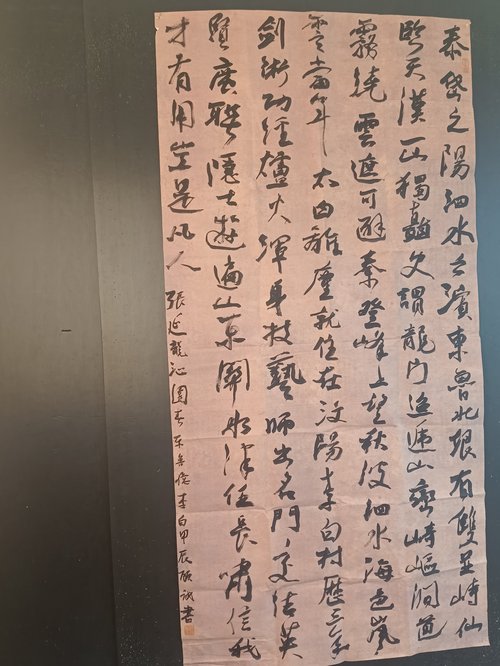 泰岱之陽泗水之濱東魯北垠有雙峙仙
天漢一山獨矗又謂龍門逶迤山巒崎嶇澗道
霧繞雲遮可避秦登峰上望秋波泗水海色嵐
雲當年太白離塵就住在汶陽李白村歷三年
劍術功經爐火渾身技藝師出名門交結英
賢廣聯隱士遊遍山東關水津任長嘯信我
才有用豈是凡人 張延龍沁園春東魯憶李白甲辰書